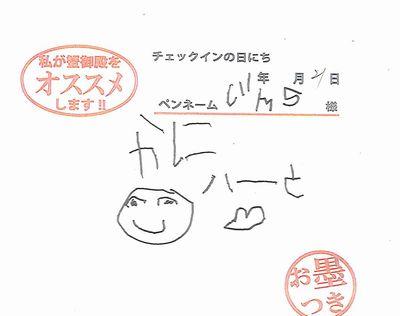 私が蟹御殿を
オススメ
します!!
チェックインの日にち
年 月 21日
ペンネーム 様
かに
ハーと
お墨
つき